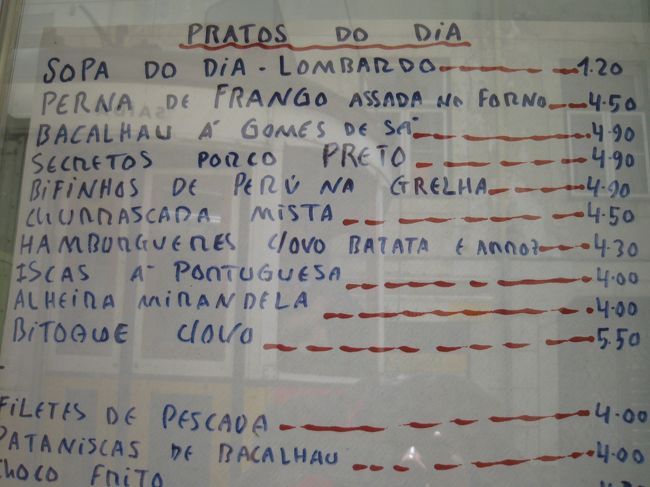 PRATOS DO DIA
SOPA DO DIA - LOMBARDO 1.20
PERNA DE FRANGO ASSADA NO FORNO 4.50
BACALHAU Á GOMES DE SÁ 4.90
SECRETOS PORCO PRETO 4.90
BIFINHOS DE PERÚ NA GRELHA 4.90
CHURRASCADA MISTA 4.50
HAMBURGUERES C/OVO BATATA E ARROZ 4.30
ISCAS Á PORTUGUESA 4.00
ALHEIRA MIRANDELA 4.00
BITOQUE C/OVO 5.50
FILETES DE PESCADA 4.00
PATANISCAS DE BACALHAU 4.00
CHOCO FRITO